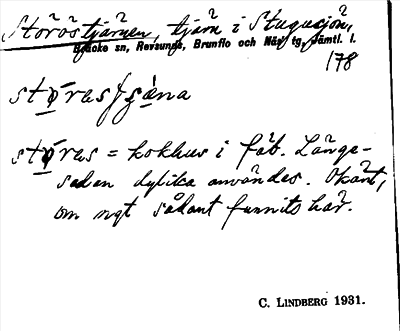 Störöstjärnen, tjärn i Stugusjön,
Bräcke sn, Revsunds, Brunflo och Näs tg, Jämtl. l.
178
stø̄rəs
stø̄rəs = kokhus i fäb. Länge-
sedan dylika användes. Okänt,
om ngt sådant funnits här.
C. LINDBERG 1931.